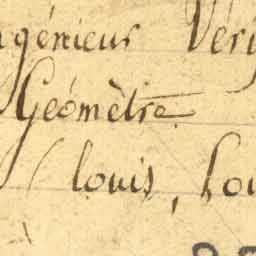 ngénieur Véri
Géomètre
(louis, Lou